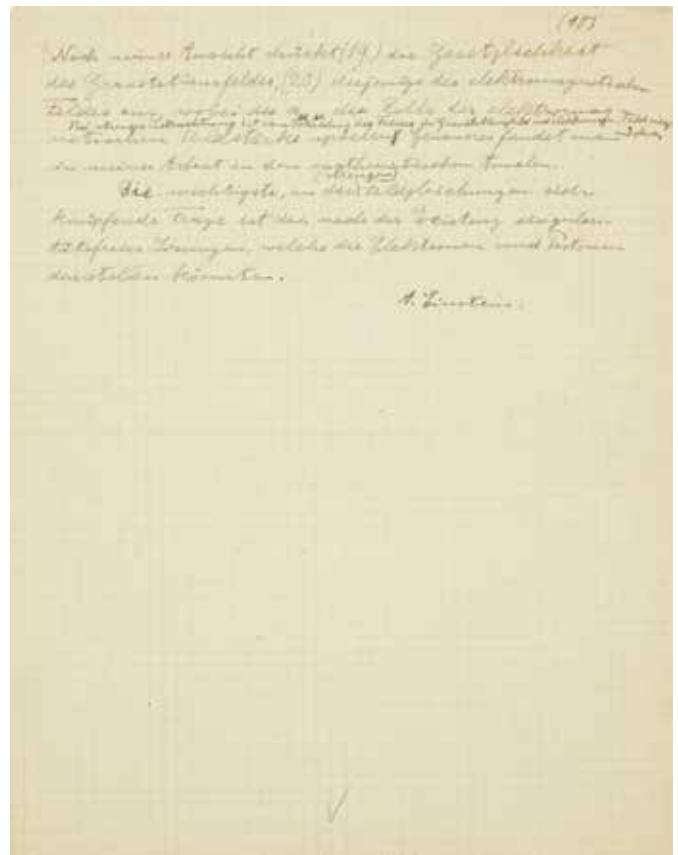 (10)
Nach meiner Ansicht drückt (19) die Gesetzlichkeit
des Gravitationsfeldes, (23) diejenige des elektromagnetischen
Feldes aus, wobei die die Rolle der elektromag-
Bei strenger Betrachtung ist eine des Feldes in Gravitationsfeld und Feld
netischen Feldstärke spielen. Genaueres findet man
in meiner Arbeit in den mathematischen Annalen.
(strengen)
Die wichtigste, an die Feldgleichungen sich
knüpfende Frage ist die nach der Existenz singulari-
tätsfreier Lösungen, welche die Elektronen und Protonen
darstellen könnten.
A. Einstein.